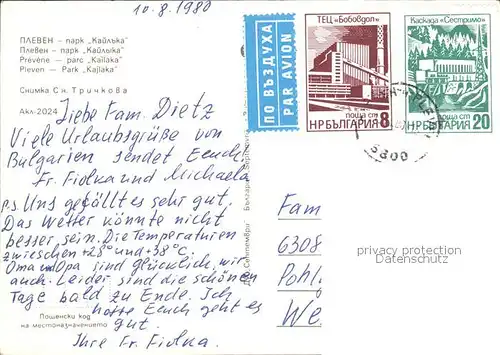 10.8.1980
ПЛЕВЕН — парк „Кайлъка“
Плевен — парк „Кайлыка“
Prévène — parc „Kaïlaka“
Pleven — Park „Kajlaka“
Снимка Сн. Тричкова
Акл-2024
ПО ВЪЗДУХА
PAR AVION
ТЕЦ „Бобовдол“
НР БЪЛГАРИЯ
поща ст 8
Каскада „Сестримо“
НР БЪЛГАРИЯ
поща ст 20
5800
Liebe Fam. Dietz
Viele Urlaubsgrüße von
Bulgarien sendet Eeuch
Fr. Fiolka und Michaela
P.S Uns gefällt es sehr gut.
Das Wetter könnte nicht
besser sein. Die Temperaturen
zwieschen +28° und +38°C.
Oma und Opa sind glücklich, wir
auch. Leider sind die schönen
Tage bald zu Ende. Ich
hoffe Eeuch geht es
gut.
Ihre Fr. Fiolka.
Пощенски код
на местоназначението
Български
Септември
Fam
6308
Pohl
We
privacy protection
Datenschutz